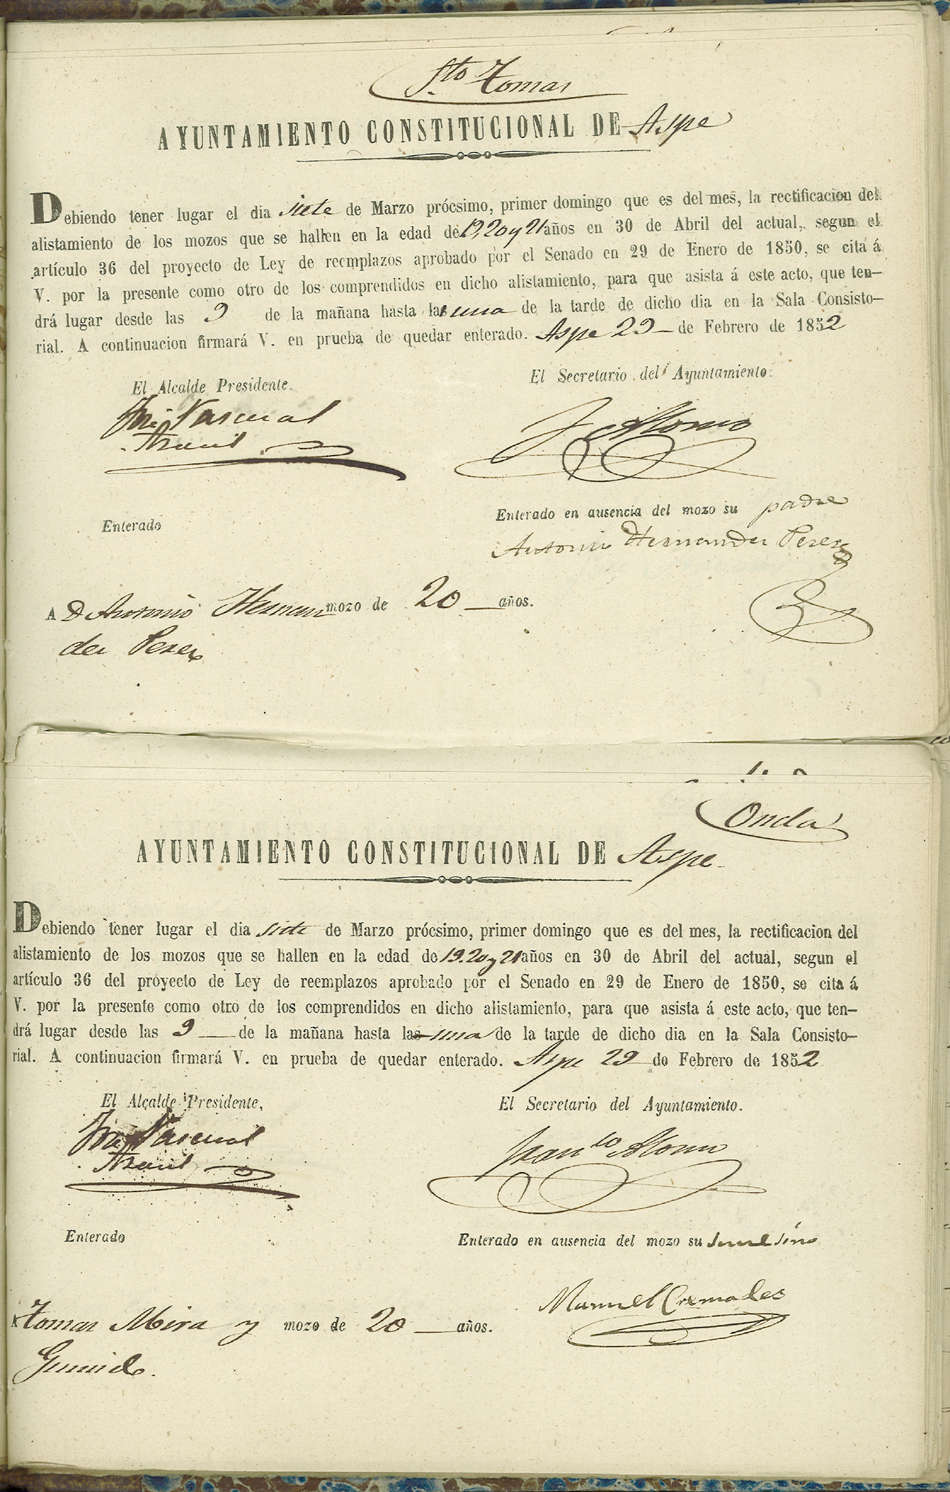 Sto Tomas
AYUNTAMIENTO CONSTITUCIONAL DE Aspe
Debiendo tener lugar el dia siete de Marzo prócsimo, primer domingo que es del mes, la rectificacion del
alistamiento de los mozos que se hallen en la edad de 19, 20 y 21 años en 30 de Abril del actual, segun el
artículo 36 del proyecto de Ley de reemplazos aprobado por el Senado en 29 de Enero de 1850, se cita á
V. por la presente como otro de los comprendidos en dicho alistamiento, para que asista á este acto, que ten-
drá lugar desde las 9 de la mañana hasta las una de la tarde de dicho dia en la Sala Consisto-
rial. A continuacion firmará V. en prueba de quedar enterado. Aspe 29 de Febrero de 1852
El Alcalde Presidente. El Secretario del Ayuntamiento.
Pascual Alonso
Enterado Enterado en ausencia del mozo su padre
Antonio Hernandez Perez
A D Antonio Hernan mozo de 20 años.
dez Perez
Onda
AYUNTAMIENTO CONSTITUCIONAL DE Aspe
Debiendo tener lugar el dia siete de Marzo prócsimo, primer domingo que es del mes, la rectificacion del
alistamiento de los mozos que se hallen en la edad de 19. 20 y 21 años en 30 de Abril del actual, segun el
artículo 36 del proyecto de Ley de reemplazos aprobado por el Senado en 29 de Enero de 1850, se cita á
V. por la presente como otro de los comprendidos en dicho alistamiento, para que asista á este acto, que ten-
drá lugar desde las 9 de la mañana hasta las una de la tarde de dicho dia en la Sala Consisto-
rial. A continuacion firmará V. en prueba de quedar enterado. Aspe 29 de Febrero de 1852
El Alcalde Presidente, El Secretario del Ayuntamiento.
Pascual Alonso
Enterado Enterado en ausencia del mozo su
Manuel Cremades
Tomas Mira y mozo de 20 años.